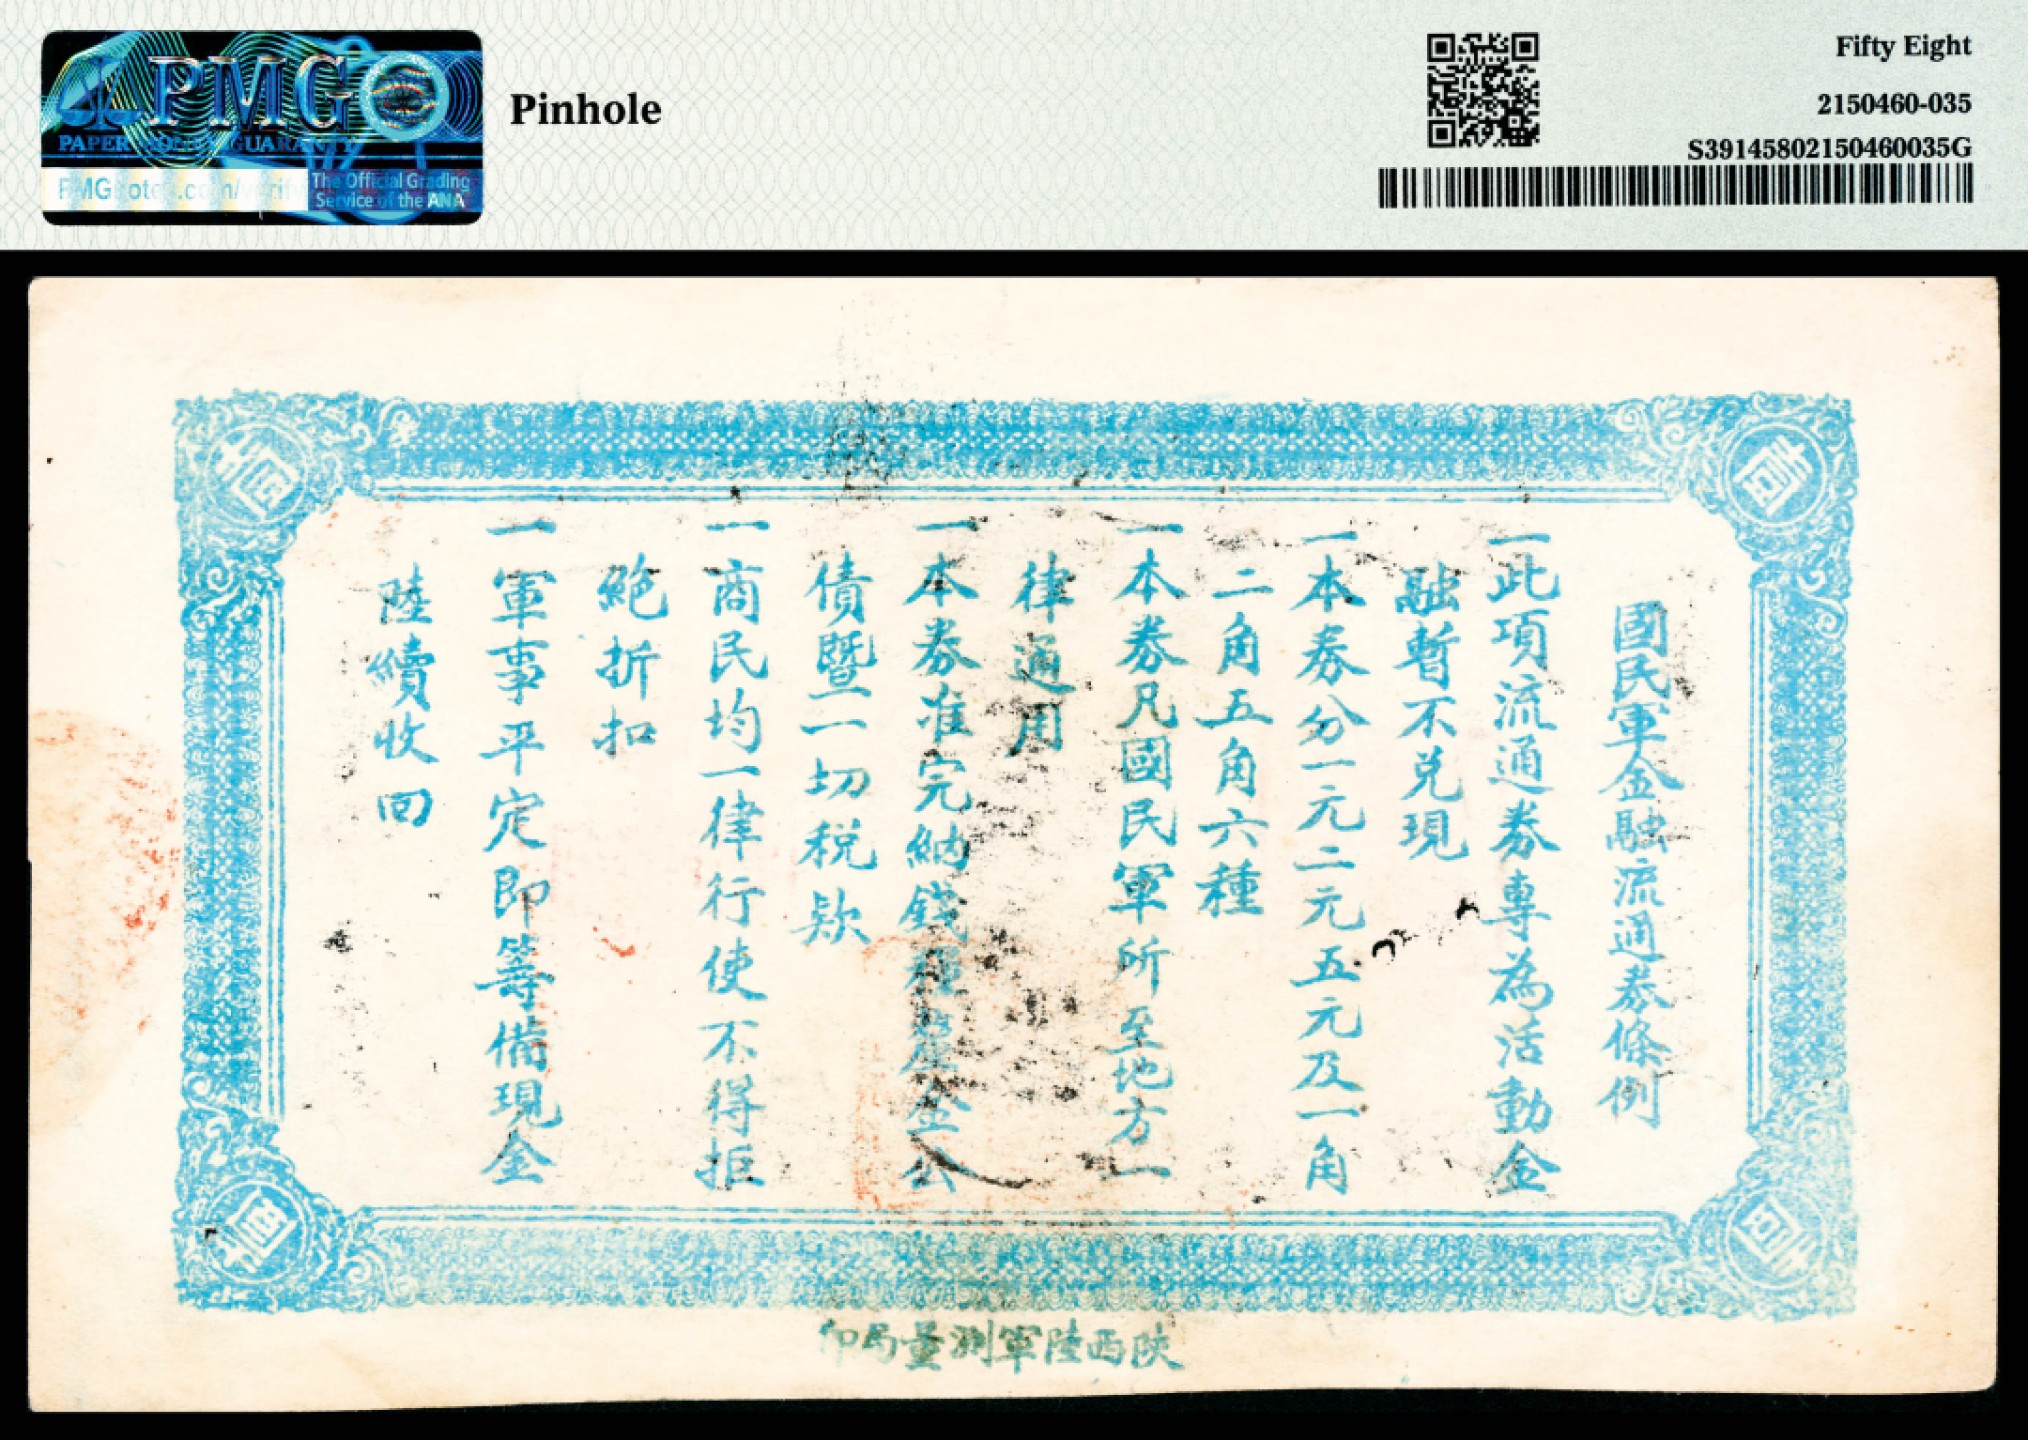 PMG
PAPER MONEY GUARANTY
The Official Grading
Service of the ANA
Pinhole
Fifty Eight
2150460-035
S39145802150460035G
國民軍金融流通券條例
一此項流通券專為活動金
融暫不兌現
一本券分一元二元五元及一角
二角五角六種
一本券凡國民軍所至地方一
律通用
一本券准完納錢糧釐金公
債暨一切税欵
一商民均一律行使不得拒
絶折扣
一軍事平定即籌備現金
陸續收回
陝西陸軍測量局印